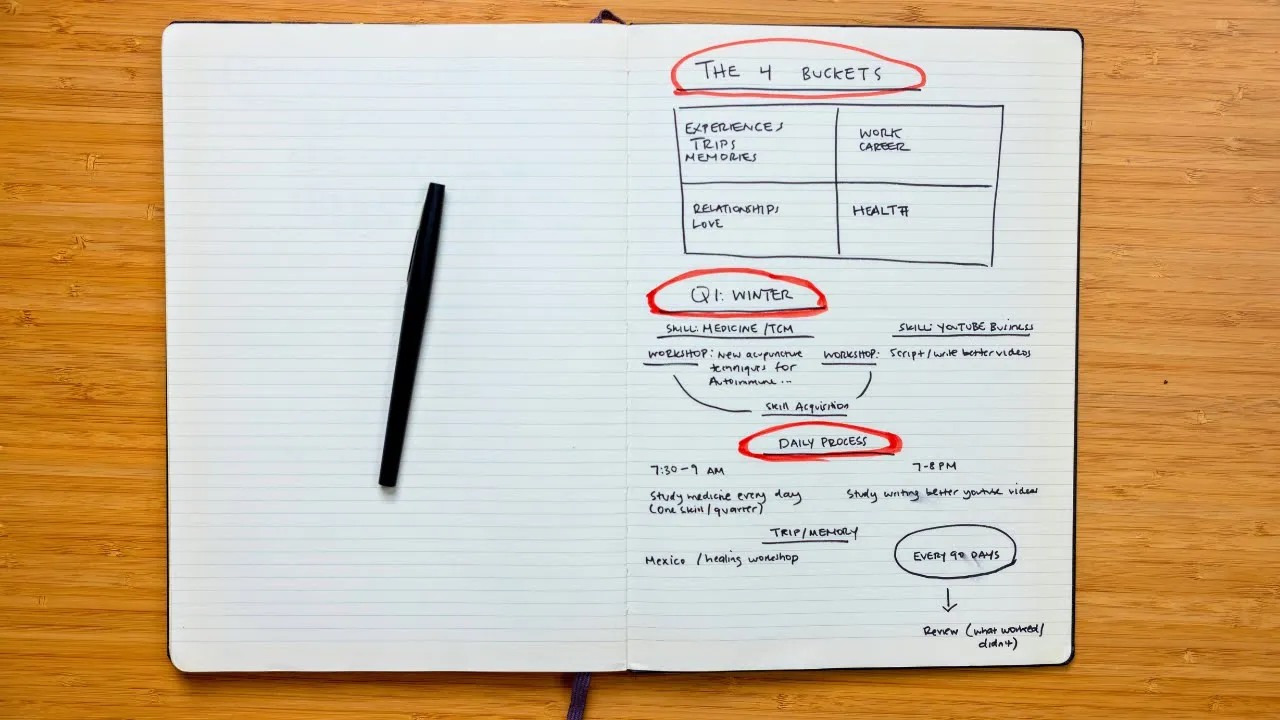 THE 4 BUCKETS
EXPERIENCES
TRIPS
MEMORIES
WORK
CAREER
RELATIONSHIPS
LOVE
HEALTH
Q1: WINTER
SKILL: MEDICINE/TCM
WORKSHOP: New acupuncture
techniques for
Autoimmune...
SKILL: YOUTUBE BUSINESS
WORKSHOP: Script/write better videos
Skill Acquisition
DAILY PROCESS
7:30-9 AM
Study medicine every day
(one skill/quarter)
7-8 PM
Study writing better youtube videos
TRIP/MEMORY
Mexico / healing workshop
EVERY 90 DAYS
Review (what worked/
didn't)